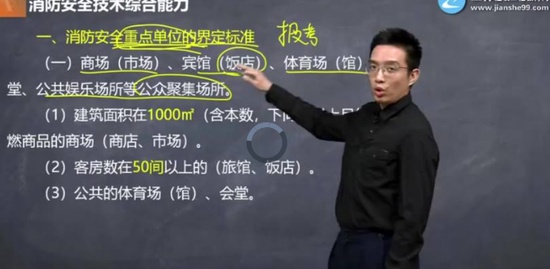 消防安全技术综合能力
www.jianshe99.com
一、消防安全重点单位的界定标准 报考
(一)商场(市场)、宾馆(饭店)、体育场(馆)
堂、公共娱乐场所等公众聚集场所。
(1)建筑面积在1000㎡(含本数,下同
燃商品的商场(商店、市场)。
(2)客房数在50间以上的(旅馆、饭店)。
(3)公共的体育场(馆)、会堂。